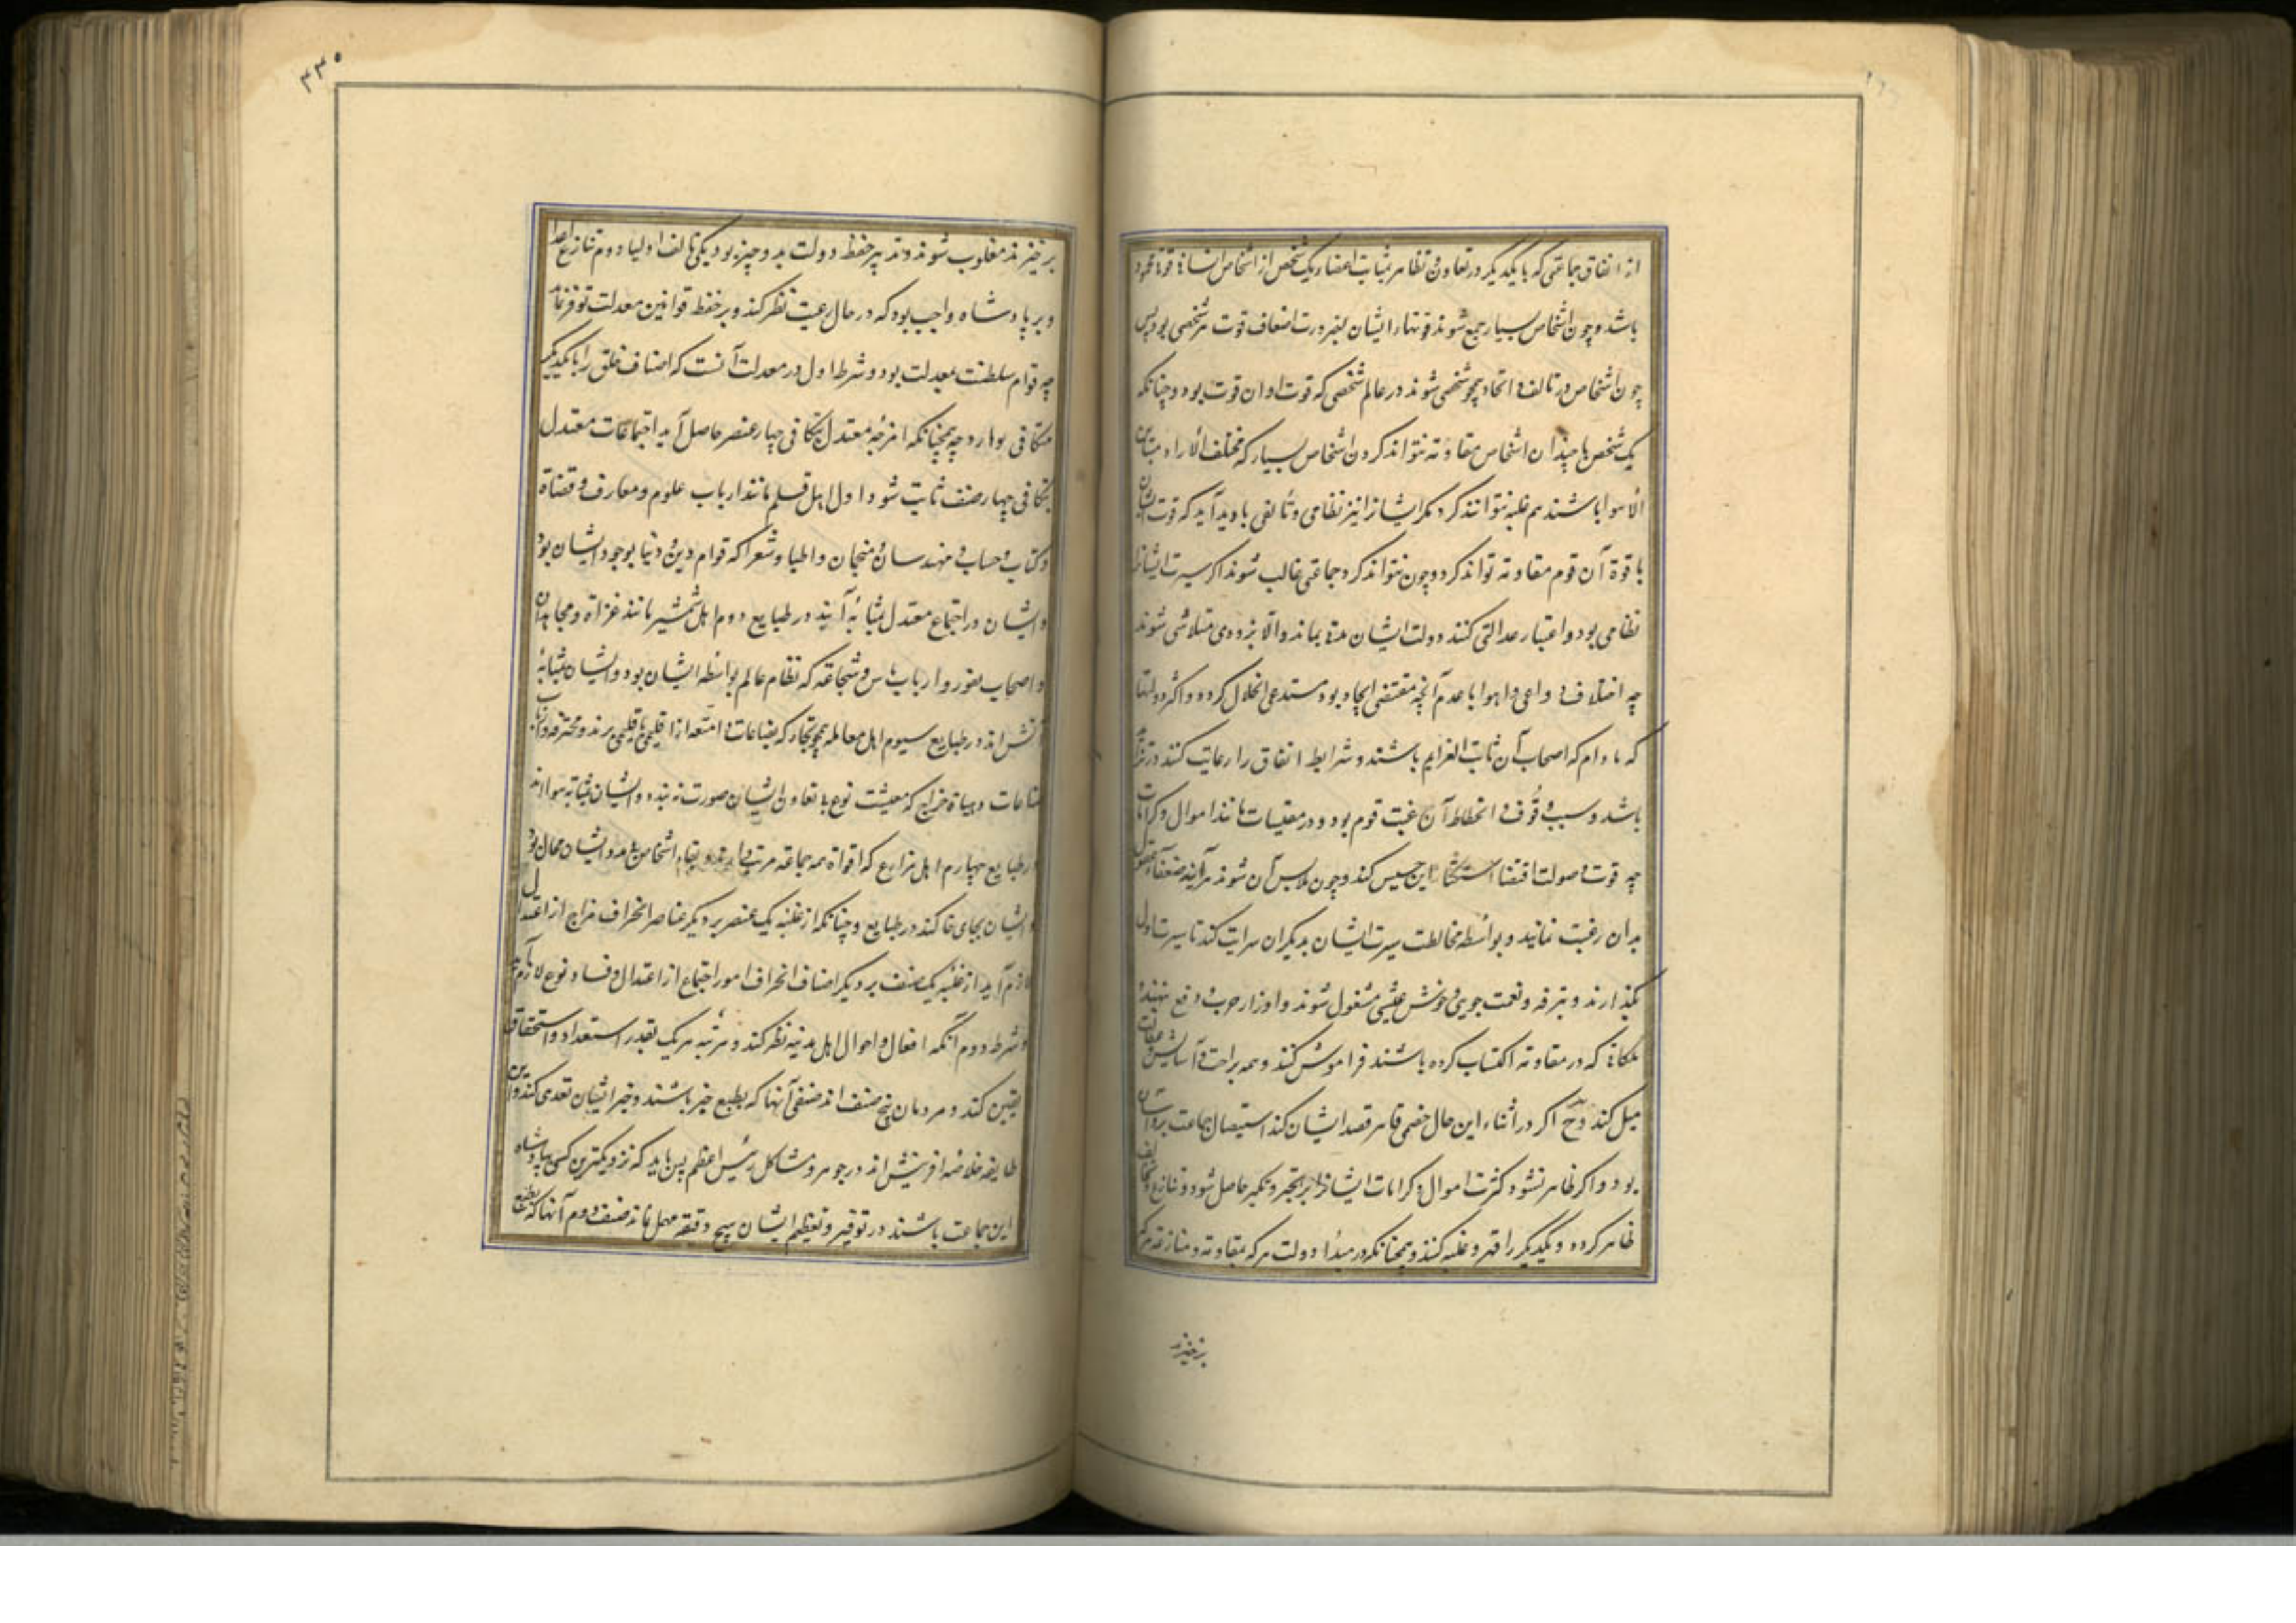 از اتفاق جماعتی که با یکدیگر در تعاون و تظاهر بمثابت اعضاء یک شخص از اشخاص انسانی قوة
باشد و چون اشخاص بسیار جمع شوند قوتهاء ایشان بضرورت اضعاف قوت هر شخصی بود پس
چون اشخاص در تالف و اتحاد همچو شخصی شوند در عالم شخصی که قوت او ان قوت بود و چنانکه
یک شخص با چندان اشخاص مقاومة نتواند کردن اشخاص بسیار که مختلف الآراء و متباین
الاهوا باشند هم غلبه نتوانند کرد مگر ایشانرا نیز نظامی و تألفی بادید آید که قوت ایشان
با قوة آن قوم مقاومة تواند کرد و چون نتواند کرد جماعتی غالب شوند اگر سیرت ایشانرا
نظامی بود و اعتبار عدالتی کنند دولت ایشان مدتی بماند والا بزودی متلاشی شوند
چه اختلاف دواعی و اهوا با عدم آنچه مقتضی ایجاد بود مستدعی انحلال کردد و اکثر دولتها
که مادام که اصحاب آن ثابت العزایم باشند و شرایط اتفاق را رعایت کنند در تزاید
باشد و سبب وقوف و انحطاط آن رغبت قوم بود در مقتنیات مانند اموال و کرامات
چه قوت و صولت اقتضا استکثار این جنس کند و چون ملابس آن شوند هرآینه ضعفاء عقول
بدان رغبت نمایند و بواسطه مخالطت سیرت ایشان بدیکران سرایت کند تا سیرت اول
بگذارند و بترفه و نعمت جویی و خوش عیشی مشغول شوند و اوزار حرب و دفع بنهند و
ملکاتی که در مقاومة اکتساب کرده باشند فراموش کنند و همه براحت و آسایش و عطلت
میل کند و ح اگر در اثناء این حال خصمی قاهر قصد ایشان کند استیصال جماعت برو آسان
بود و اگر ظاهر نشود کثرت اموال و کرامات ایشانرا بر تجبر و تکبر حاصل شود و تنازع و تخالف
ظاهر کردد و یکدیگر را قهر و غلبه کنند و همچنانکه در مبدأ دولت هر که بمقاومة و منازعة هر که
برخیزند
۴۴۰
برخیزند مغلوب شوند و تدبیر حفظ دولت بدو چیز بود یکی تالف اولیا دوم تنازع اعدا
و بر پادشاه واجب بود که در حال رعیت نظر کند و بر حفظ قوانین معدلت توفر نماید
چه قوام سلطنت بمعدلت بود و شرط اول در معدلت آنست که اصناف خلق را با یکدیگر
متکافی بدارد چه همچنانکه امزجه معتدل بتکافی چهار عنصر حاصل آید اجتماعات معتدل
بتکافی چهار صنف ثابت شود اول اهل قلم مانند ارباب علوم و معارف و قضاة
و کتاب و حساب و مهندسان و منجمان و اطبا و شعرا که قوام دین و دنیا بوجود ایشان بود
و ایشان در اجتماع معتدل بمثابه آبند در طبایع دوم اهل شمشیر مانند غزاة و مجاهدان
و اصحاب ثغور و ارباب بأس و شجاعة که نظام عالم بواسطه ایشان بود و ایشان بمثابه
آتش اند در طبایع سیوم اهل معامله همچو تجار که بضاعات و امتعه از اقلیمی باقلیمی برند و محترفه و ارباب
صناعات و جباة خراج که معیشت نوع بی تعاون ایشان صورت نه بندد و ایشان بمثابه هوااند
در طبایع چهارم اهل مزارع که اقواة همه جماعة مرتب دارند و بقاء اشخاص بی مدد ایشان محال بود
و ایشان بجای خاکند در طبایع و چنانکه از غلبه یک عنصر بر دیگر عناصر انحراف مزاج از اعتدال
لازم آید از غلبه یک صنف بر دیگر اصناف انحراف امور اجتماع از اعتدال و فساد نوع لازم آید
و شرط دوم آنکه افعال و احوال اهل مدینه نظر کند و مرتبه هر یک بقدر استعداد و استحقاق
تعیین کند و مردمان پنج صنف اند صنفی آنها که بطبع خیر باشند و خیر ایشان تعدی کند و این
طایفه خلاصه افرینش اند در جوهر و مشاکل رئیس اعظم پس باید که نزدیکترین کسی بپادشاه
این جماعت باشند در توقیر و تعظیم ایشان هیچ دقیقه مهمل نماند صنف دوم آنها که بطبع